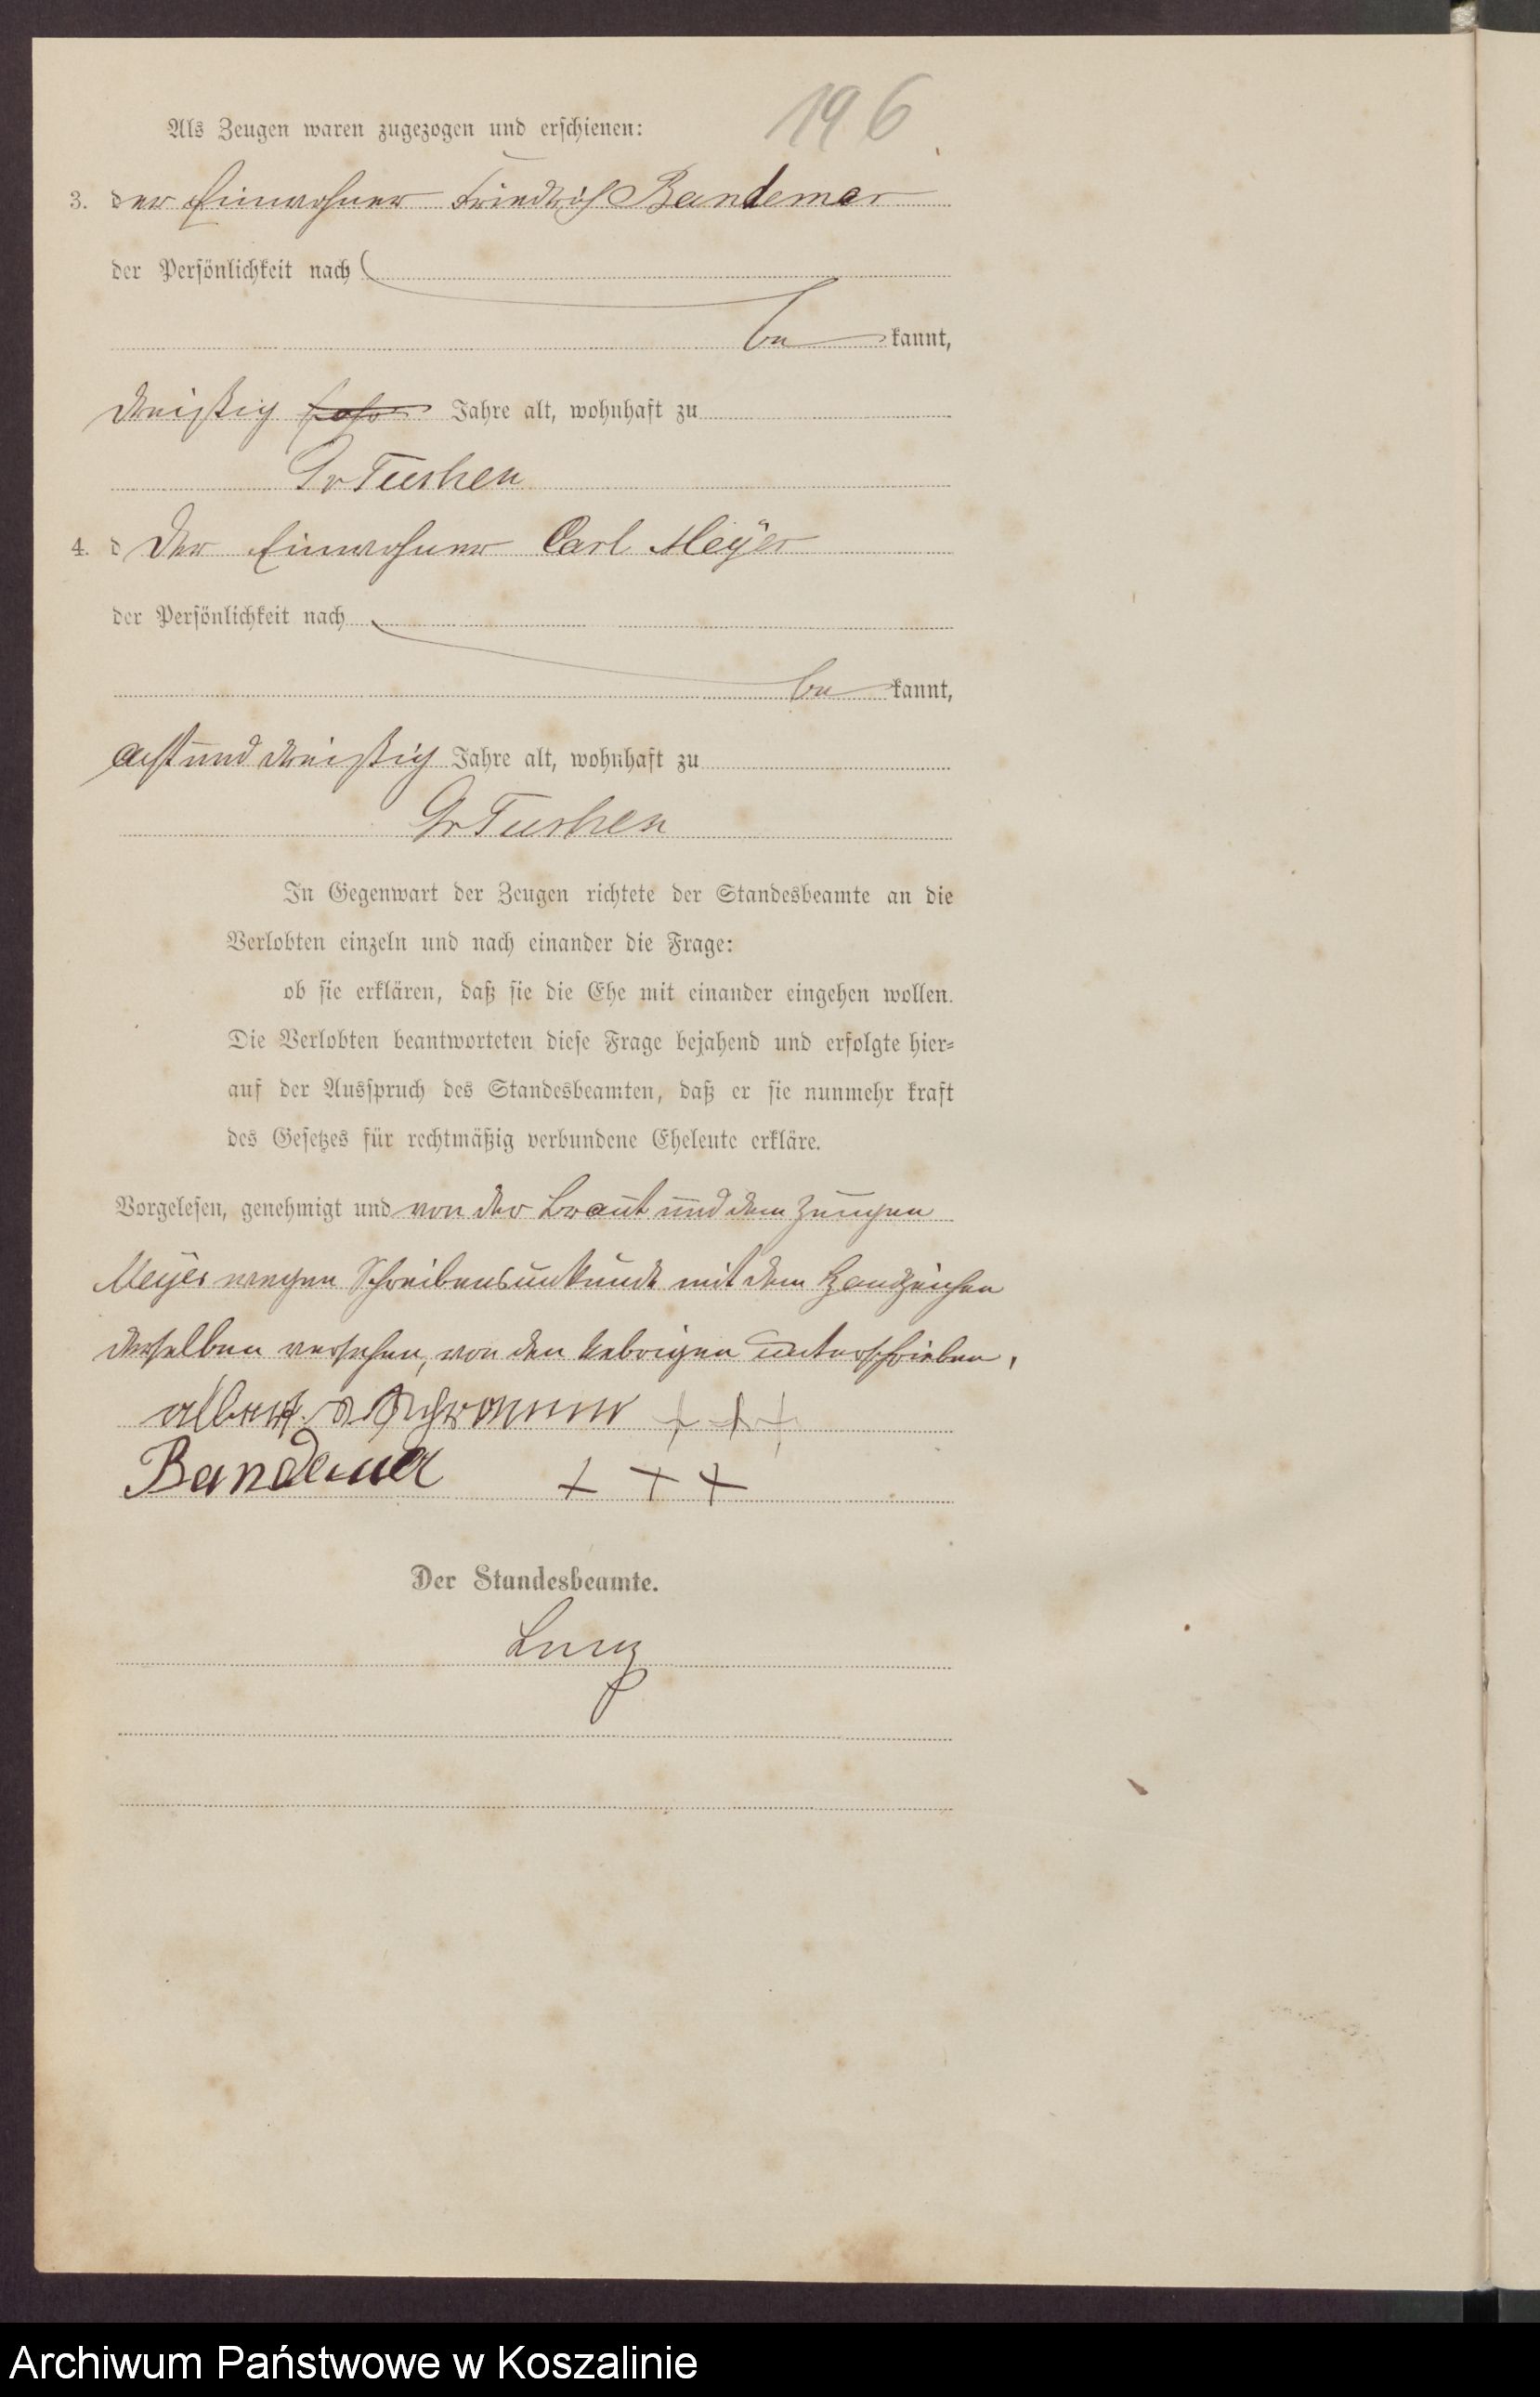 196
Als Zeugen waren zugezogen und erschienen:
3. der Einwohner Friedrich Bandemer
der Persönlichkeit nach
be kannt,
dreißig Jahre alt, wohnhaft zu
Gr Tuchen
4. d Der Einwohner Carl Meyer
der Persönlichkeit nach
be kannt,
acht und dreißig Jahre alt, wohnhaft zu
Gr Tuchen
In Gegenwart der Zeugen richtete der Standesbeamte an die
Verlobten einzeln und nach einander die Frage:
ob sie erklären, daß sie die Ehe mit einander eingehen wollen.
Die Verlobten beantworteten diese Frage bejahend und erfolgte hier-
auf der Ausspruch des Standesbeamten, daß er sie nunmehr kraft
des Gesetzes für rechtmäßig verbundene Eheleute erkläre.
Vorgelesen, genehmigt und von der Braut und dem Zeugen
Meyer wegen Schreibensunkunde mit dem Handzeichen
derselben versehen, von den Uebrigen unterschrieben.
Albert +++
Bandemer +++
Der Standesbeamte.
Archiwum Państwowe w Koszalinie